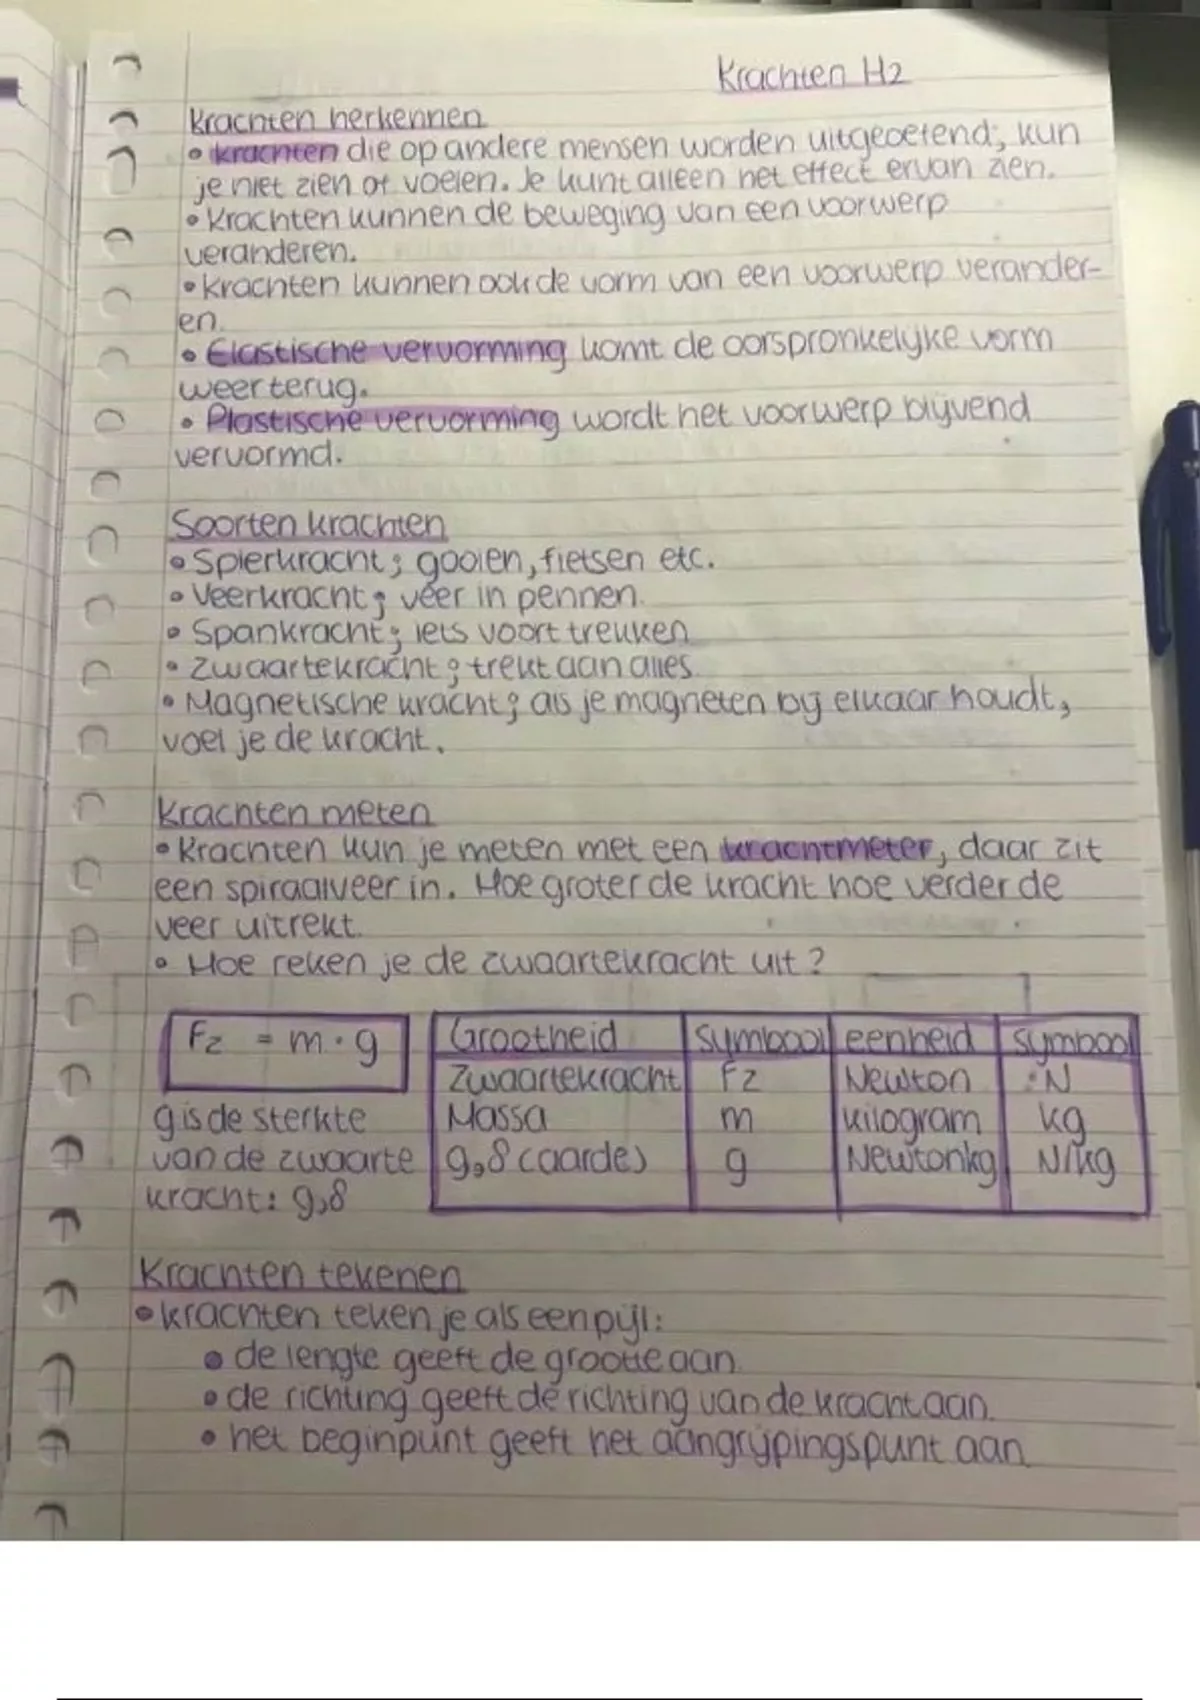 Krachten H2
Krachten herkennen
• krachten die op andere mensen worden uitgeoefend; kun
je niet zien of voelen. Je kunt alleen het effect ervan zien.
• Krachten kunnen de beweging van een voorwerp
veranderen.
• krachten kunnen ook de vorm van een voorwerp verander-
en.
• Elastische vervorming komt de oorspronkelijke vorm
weer terug.
• Plastische vervorming wordt het voorwerp blijvend
vervormd.
Soorten krachten
• Spierkracht; gooien, fietsen etc.
• Veerkracht; veer in pennen.
• Spankracht; iets voort trekken
• Zwaartekracht; trekt aan alles.
• Magnetische kracht; als je magneten bij elkaar houdt,
voel je de kracht.
Krachten meten
• Krachten kun je meten met een krachtmeter, daar zit
een spiraalveer in. Hoe groter de kracht hoe verder de
veer uitrekt.
• Hoe reken je de zwaartekracht uit?
Fz = m · g
g is de sterkte
van de zwaarte
kracht: 9,8
Grootheid symbool eenheid symbool
Zwaartekracht Fz Newton N
Massa m kilogram kg
9,8 (aarde) g Newtonkg N/kg
Krachten tekenen
• krachten teken je als een pijl:
• de lengte geeft de grootte aan.
• de richting geeft de richting van de kracht aan.
• het beginpunt geeft het aangrijpingspunt aan